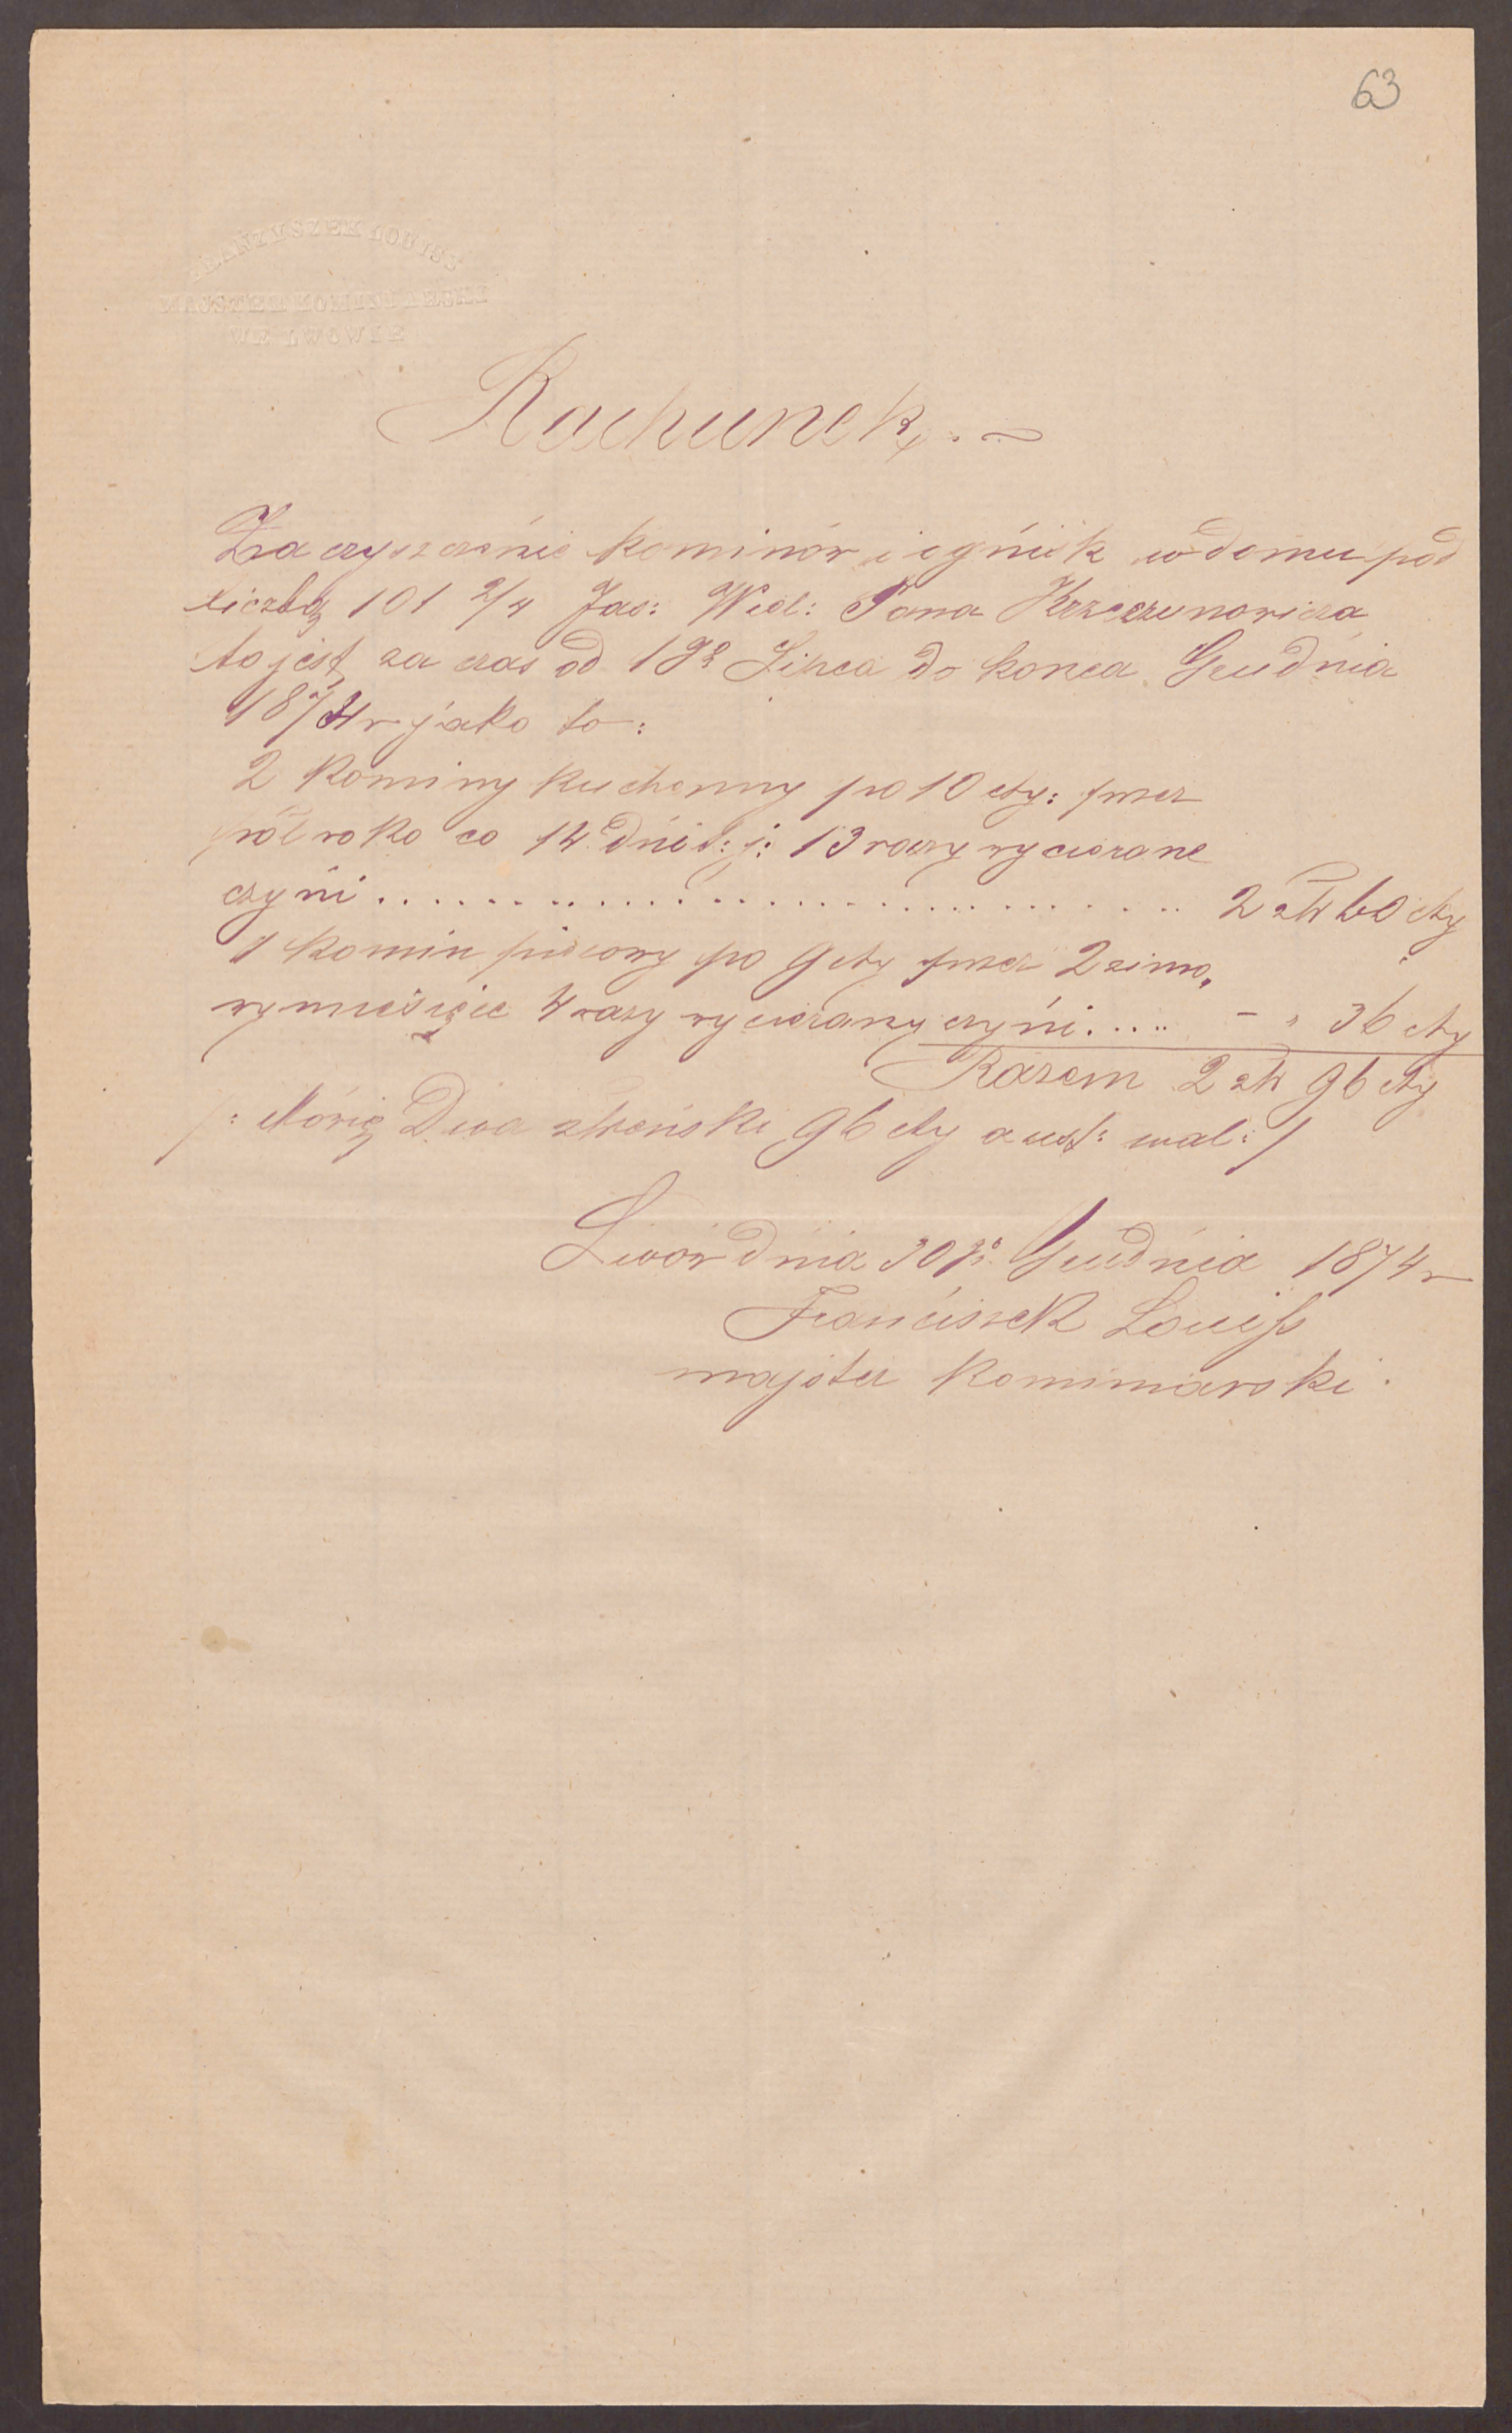 63
FRAŃZYSZEK LOUISS
MAJSZTER KOMINIARSKI
WE LWOWIE
Rachunek.
Za czyszczénie kominów i ogńisk w domu pod
liczbą 101 2/4 Jas: Wiel: Pana Krzeczunowicza
to jest za czas od 1go Lipca do konca Grudnia
1874 r jako to:
2 Kominy Kuchenny po 10 cty: przez
pół roko co 14 dńi t: j: 13 razy wycierane
czyńi .................................. 2 złr 60 cty
1 Komin piecowy po 9 cty przez 2 zimo,
wy miesięce 4 razy wycierany czyńi..... - " 36 cty
Razem 2 złr 96 cty
/: Mówię Dwa złreński 96 cty aust: wal: /
Lwów dnia 30go Grudnia 1874 r
Franciszek Louiss
majster Kominiarski.